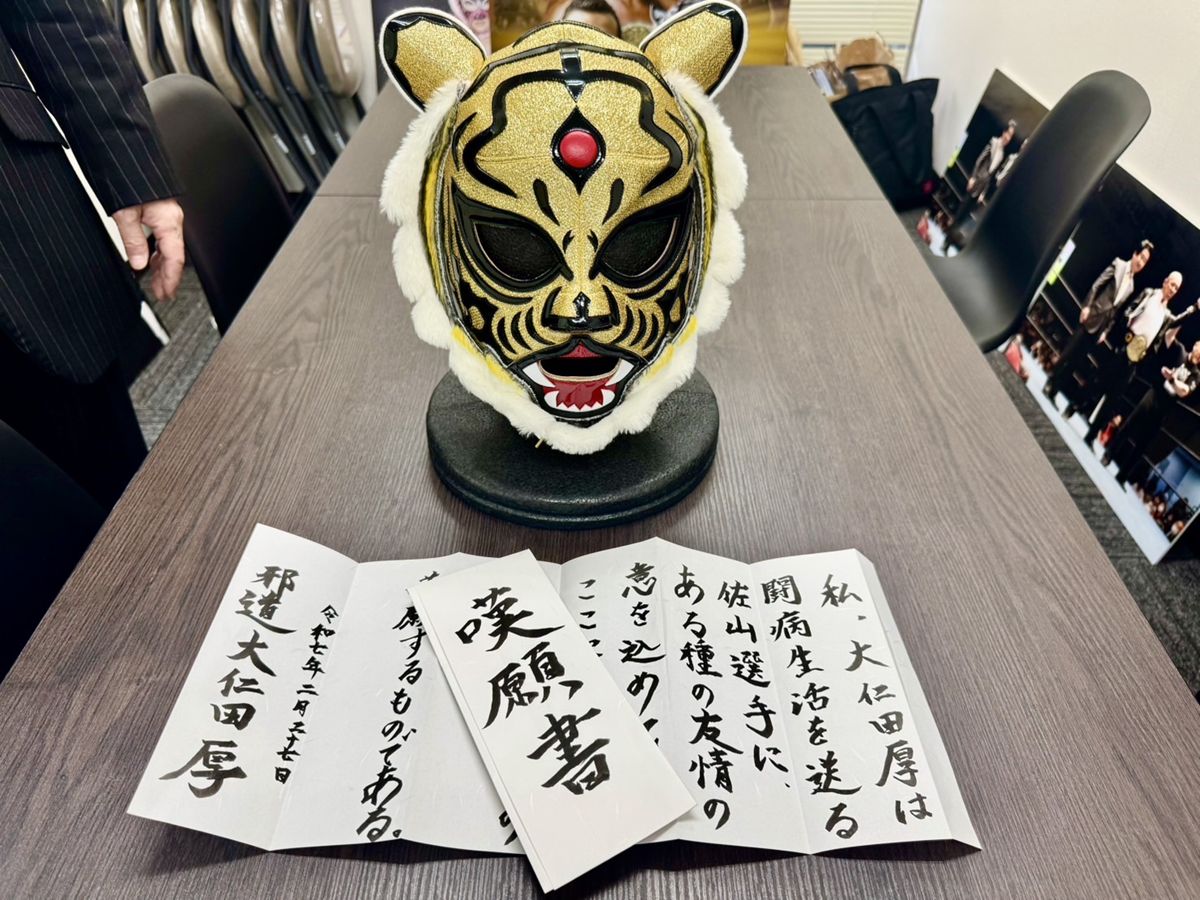 嘆願書
私、大仁田厚は
闘病生活を送る
佐山選手に、
ある種の友情の
意を込めて
ここに
願するものである。
令和七年二月二十七日
邪道大仁田厚